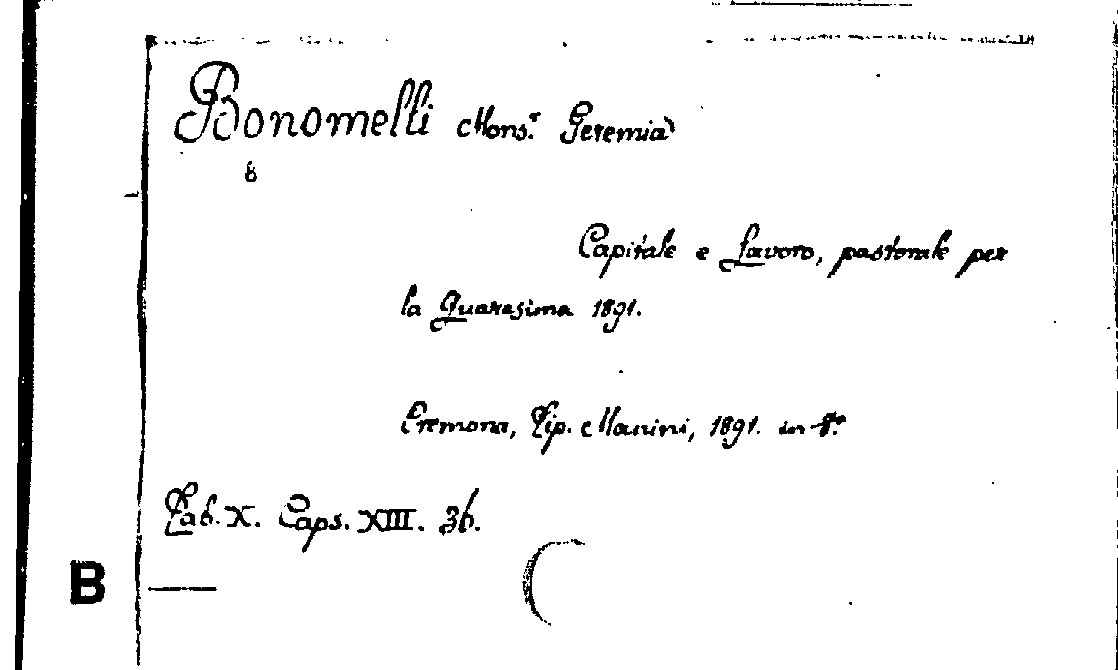 Bonomelli Mons.r Geremia
6
Capitale e Lavoro, pastorale per
la Quaresima 1891.
Cremona, Tip. Manini, 1891. in 8.o
Tab. X. Caps. XIII. 36.
B